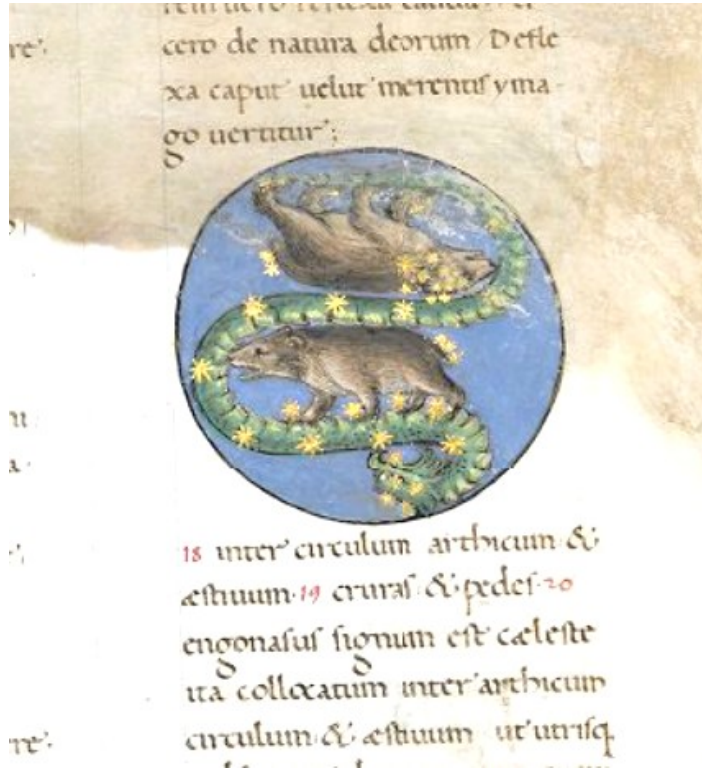 cero de natura deorum Defle
xa caput uelut merentis yma
go uertitur;
re;
18 inter circulum arthicum &
æstiuum·19 cruras & pedes·20
engonasus signum est cæleste
ita collocatum inter arthicum
circulum & æstiuum ut utrisq
re;